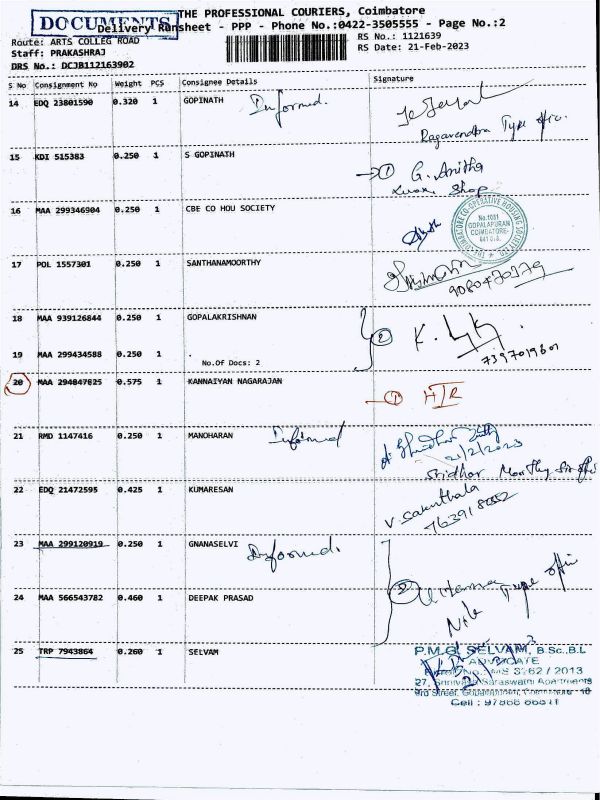 DOCUMENTS
THE PROFESSIONAL COURIERS, Coimbatore
Delivery Runsheet - PPP - Phone No.:0422-3505555 - Page No.:2
Route: ARTS COLLEG ROAD
RS No.: 1121639
Staff: PRAKASHRAJ
RS Date: 21-Feb-2023
DRS No.: DCJB112163902
S No Consignment No Weight PCS Consignee Details Signature
14 EDQ 23801590 0.320 1 GOPINATH Informed.
Ragavendra Type
15 KDI 515383 0.250 1 S GOPINATH
1 G. Anitha
Shop
16 MAA 299346904 0.250 1 CBE CO HOU SOCIETY
No.1051
GOPALAPURAM
COIMBATORE-
17 POL 1557301 0.250 1 SANTHANAMOORTHY
18 MAA 939126844 0.250 1 GOPALAKRISHNAN
2 K.
19 MAA 299434588 0.250 1 .
No.Of Docs: 2
20 MAA 294847825 0.575 1 KANNAIYAN NAGARAJAN
1
21 RMD 1147416 0.250 1 MANOHARAN Informed
21/2/2023
Sridhar
22 EDQ 21472595 0.425 1 KUMARESAN
V. Sakunthala
23 MAA 299120919 0.250 1 GNANASELVI Informed.
2
24 MAA 566543782 0.460 1 DEEPAK PRASAD
Type
25 TRP 7943864 0.260 1 SELVAM
P.M.G. SELVAM, B.Sc.,B.L
ADVOCATE
MS 3262 / 2013
27, Srinivasa Saraswathi Apartments
3rd Street,
Cell :